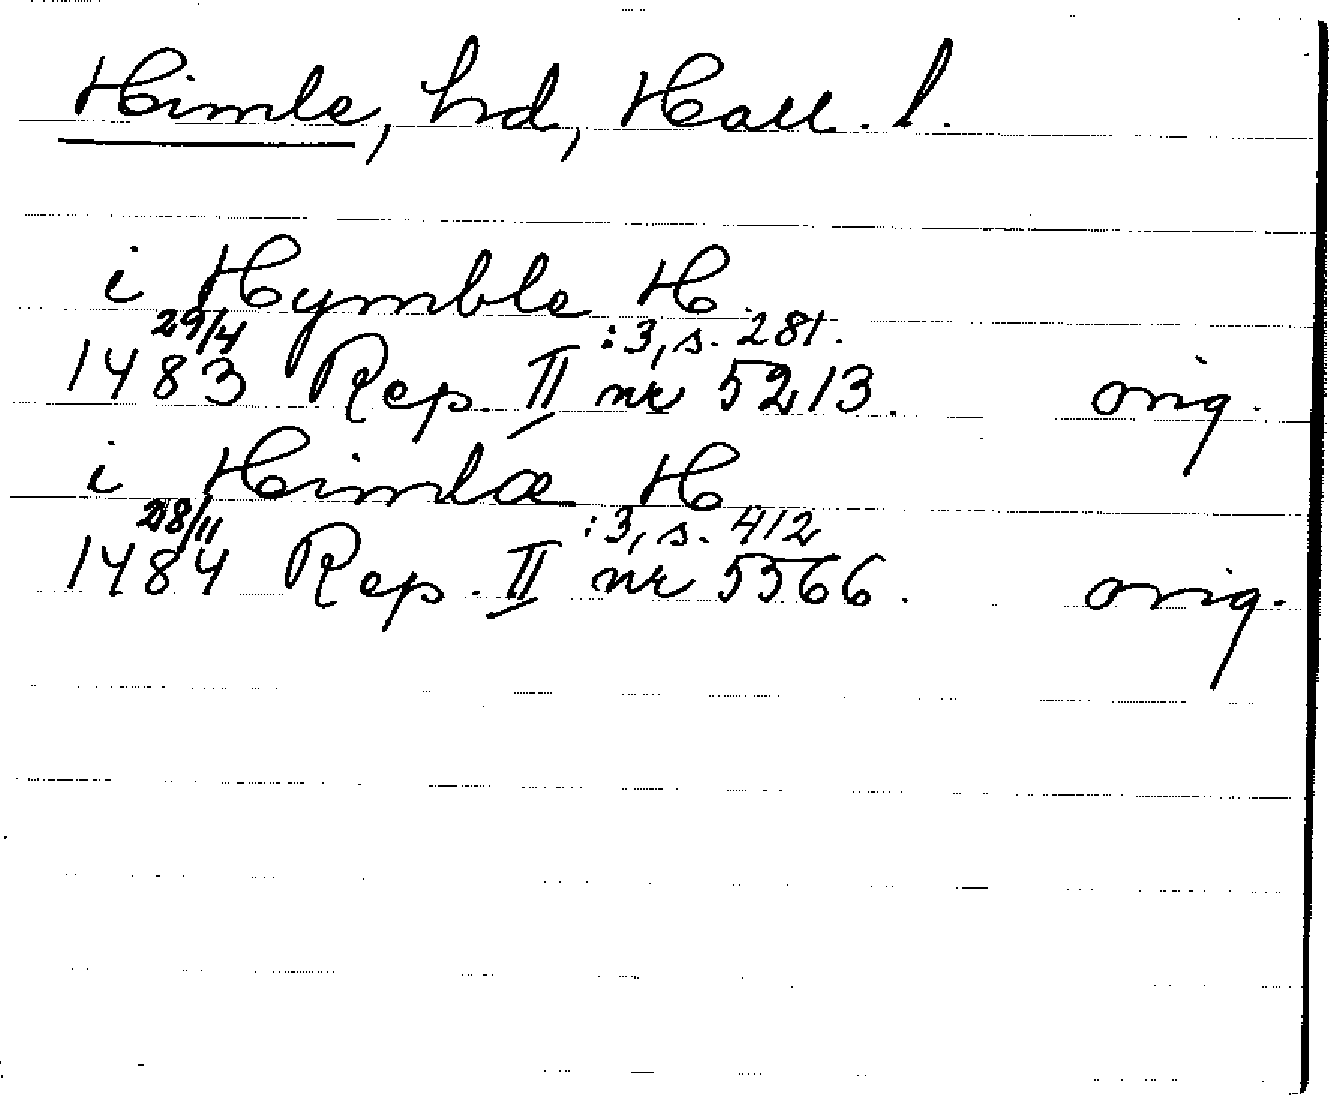 Himle, hd, Hall. l.
i Hymble H.
29/4 :3, s. 281.
1483 Rep. II nr 5213. orig.
i Himlæ H
28/11 :3, s. 412
1484 Rep. II nr 5566. orig.